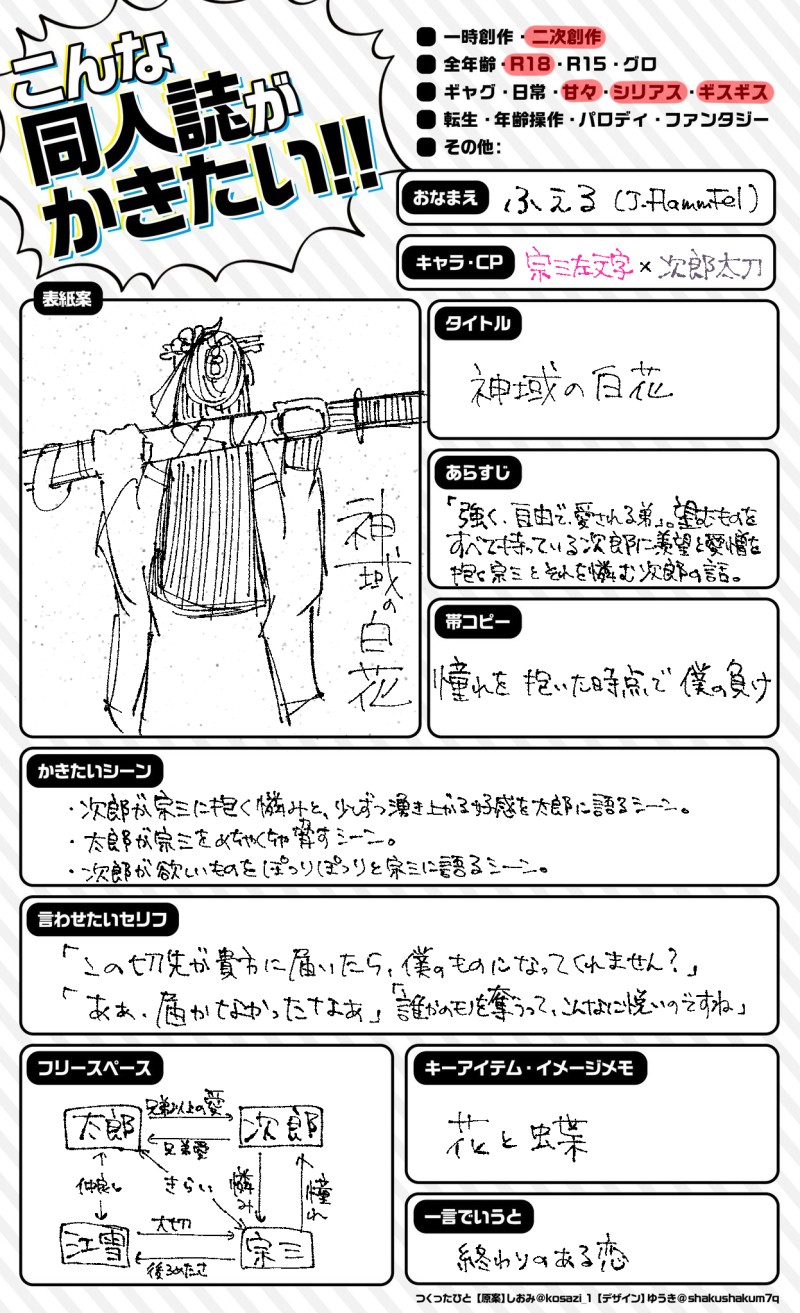 こんな
同人誌が
かきたい!!
一時創作・二次創作
全年齢・R18・R15・グロ
ギャグ・日常・甘々・シリアス・ギスギス
転生・年齢操作・パロディ・ファンタジー
その他:
おなまえ
ふぇる (J-flammfel)
キャラ・CP
宗三左文字 × 次郎太刀
表紙案
神域の白花
タイトル
神域の白花
あらすじ
「強く、自由で、愛される弟」。望むものを
すべて持っている次郎に羨望と愛憎を
抱く宗三とそれを憐む次郎の話。
帯コピー
憧れを抱いた時点で僕の負け
かきたいシーン
・次郎が宗三に抱く憐みと、少しずつ湧き上がる好感を太郎に語るシーン。
・太郎が宗三をめちゃくちゃ脅すシーン。
・次郎が欲しいものをぽつりぽつりと宗三に語るシーン。
言わせたいセリフ
「この切先が貴方に届いたら、僕のものになってくれません?」
「あぁ、届かなかったなあ」「誰かのモノを奪うって、こんなに悦いのですね」
フリースペース
太郎
兄弟以上の愛
次郎
兄弟愛
仲良し
きらい
憐み
憧れ
江雪
大切
宗三
後ろめたさ
キーアイテム・イメージメモ
花と蝶
一言でいうと
終わりのある恋
つくったひと【原案】しおみ@kosazi_1【デザイン】ゆうき@shakushakum7q